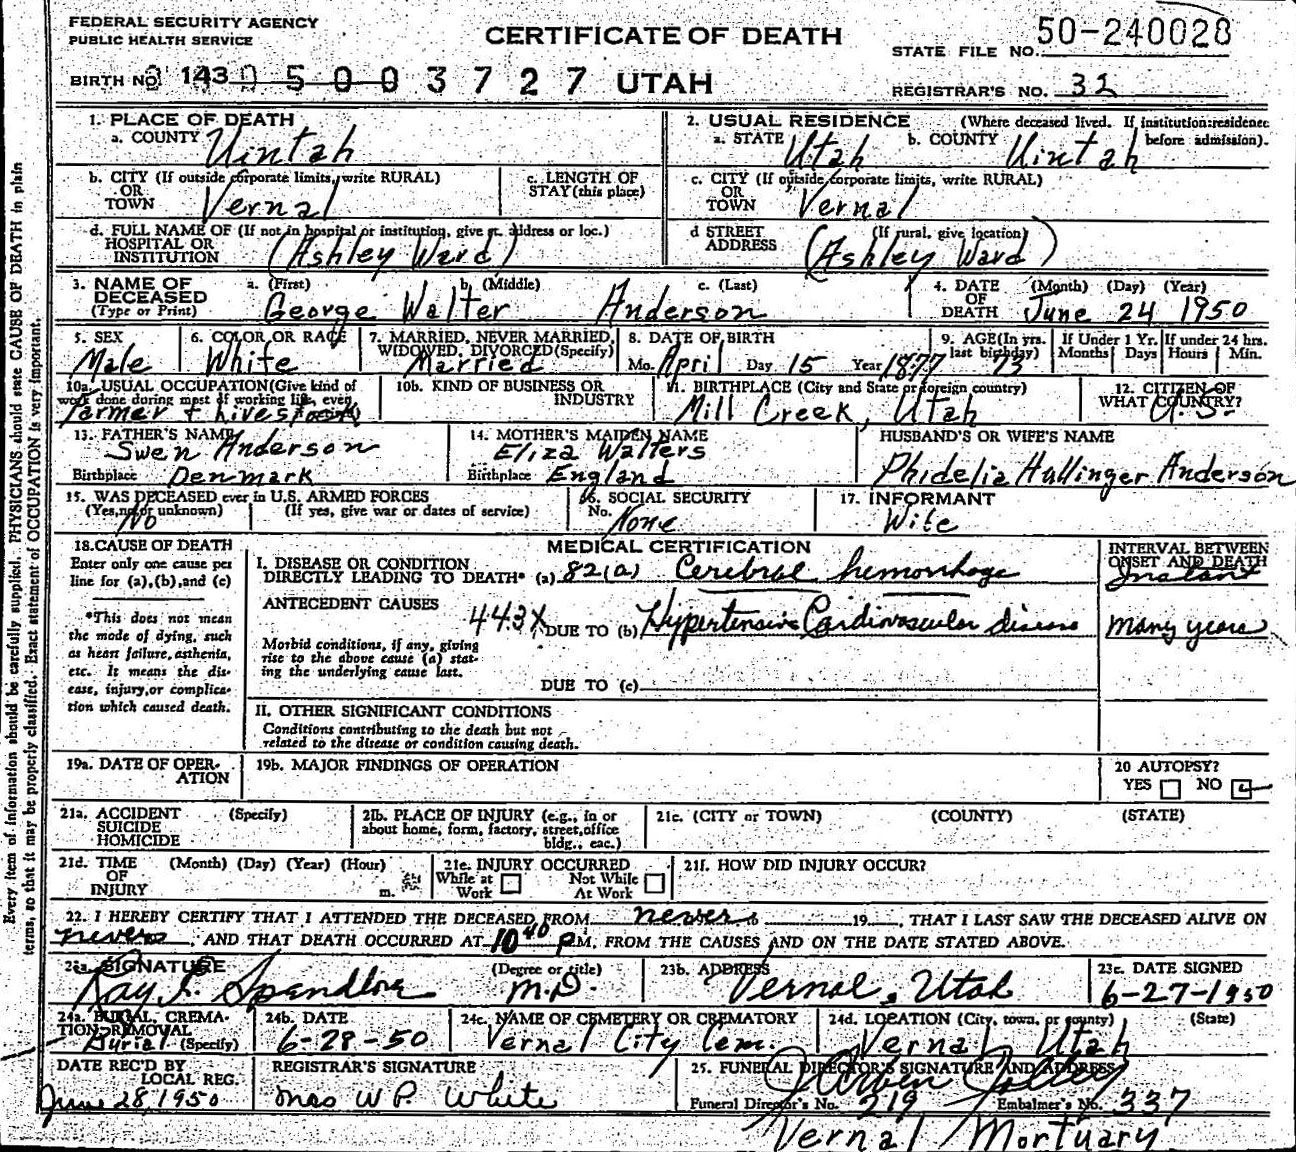 FEDERAL SECURITY AGENCY
PUBLIC HEALTH SERVICE
CERTIFICATE OF DEATH
STATE FILE NO. 50-240028
BIRTH NO. 143 0 5 0 0 3 7 2 7 UTAH
REGISTRAR'S NO. 32
1. PLACE OF DEATH
a. COUNTY Uintah
2. USUAL RESIDENCE (Where deceased lived. If institution:residence before admission).
a. STATE Utah b. COUNTY Uintah
b. CITY (If outside corporate limits, write RURAL) OR TOWN Vernal
c. LENGTH OF STAY (this place)
c. CITY (If outside corporate limits, write RURAL) OR TOWN Vernal
d. FULL NAME OF (If not in hospital or institution, give st. address or loc.) HOSPITAL OR INSTITUTION (Ashley Ward)
d STREET ADDRESS (If rural, give location) (Ashley Ward)
3. NAME OF DECEASED (Type or Print) a. (First) b. (Middle) c. (Last)
George Walter Anderson
4. DATE OF DEATH (Month) (Day) (Year)
June 24 1950
5. SEX Male
6. COLOR OR RACE White
7. MARRIED, NEVER MARRIED, WIDOWED, DIVORCED (Specify) Married
8. DATE OF BIRTH
Mo. April Day 15 Year 1877
9. AGE (In yrs. last birthday) 73
If Under 1 Yr. Months Days
If under 24 hrs. Hours Min.
10a. USUAL OCCUPATION (Give kind of work done during most of working life, even
Farmer + Livestock
10b. KIND OF BUSINESS OR INDUSTRY
11. BIRTHPLACE (City and State or foreign country)
Mill Creek, Utah
12. CITIZEN OF WHAT COUNTRY? U.S.
13. FATHER'S NAME Swen Anderson
Birthplace Denmark
14. MOTHER'S MAIDEN NAME Eliza Walters
Birthplace England
HUSBAND'S OR WIFE'S NAME
Phidelia Hullinger Anderson
15. WAS DECEASED ever in U.S. ARMED FORCES
(Yes, no, or unknown) (If yes, give war or dates of service)
No
16. SOCIAL SECURITY No. None
17. INFORMANT
Wife
18. CAUSE OF DEATH
Enter only one cause per line for (a), (b), and (c)
*This does not mean the mode of dying, such as heart failure, asthenia, etc. It means the disease, injury, or complication which caused death.
MEDICAL CERTIFICATION
INTERVAL BETWEEN ONSET AND DEATH
I. DISEASE OR CONDITION DIRECTLY LEADING TO DEATH* (a) 82(a) Cerebral hemorrhage Instant
ANTECEDENT CAUSES
443X DUE TO (b) Hypertensive Cardiovascular disease many years
Morbid conditions, if any, giving rise to the above cause (a) stating the underlying cause last.
DUE TO (c)
II. OTHER SIGNIFICANT CONDITIONS
Conditions contributing to the death but not related to the disease or condition causing death.
19a. DATE OF OPERATION
19b. MAJOR FINDINGS OF OPERATION
20 AUTOPSY?
YES NO
21a. ACCIDENT SUICIDE HOMICIDE (Specify)
21b. PLACE OF INJURY (e.g., in or about home, form, factory, street, office bldg., eac.)
21c. (CITY or TOWN) (COUNTY) (STATE)
21d. TIME OF INJURY (Month) (Day) (Year) (Hour) m.
21e. INJURY OCCURRED
While at Work Not While At Work
21f. HOW DID INJURY OCCUR?
22. I HEREBY CERTIFY THAT I ATTENDED THE DECEASED FROM never 19 , THAT I LAST SAW THE DECEASED ALIVE ON
never , AND THAT DEATH OCCURRED AT 10 40 P M, FROM THE CAUSES AND ON THE DATE STATED ABOVE.
23a. SIGNATURE (Degree or title)
Ray E. Spendlove M.D.
23b. ADDRESS
Vernal, Utah
23c. DATE SIGNED
6-27-1950
24a. BURIAL, CREMATION, REMOVAL (Specify) Burial
24b. DATE
6-28-50
24c. NAME OF CEMETERY OR CREMATORY
Vernal City Cem.
24d. LOCATION (City, town, or county) (State)
Vernal Utah
DATE REC'D BY LOCAL REG.
June 28, 1950
REGISTRAR'S SIGNATURE
Mrs W P. White
25. FUNERAL DIRECTOR'S SIGNATURE AND ADDRESS
Funeral Director's No. 219 Embalmer's No. 337
Vernal Mortuary
Every item of information should be carefully supplied. PHYSICIANS should state CAUSE OF DEATH in plain
terms, so that it may be properly classified. Exact statement of OCCUPATION is very important.